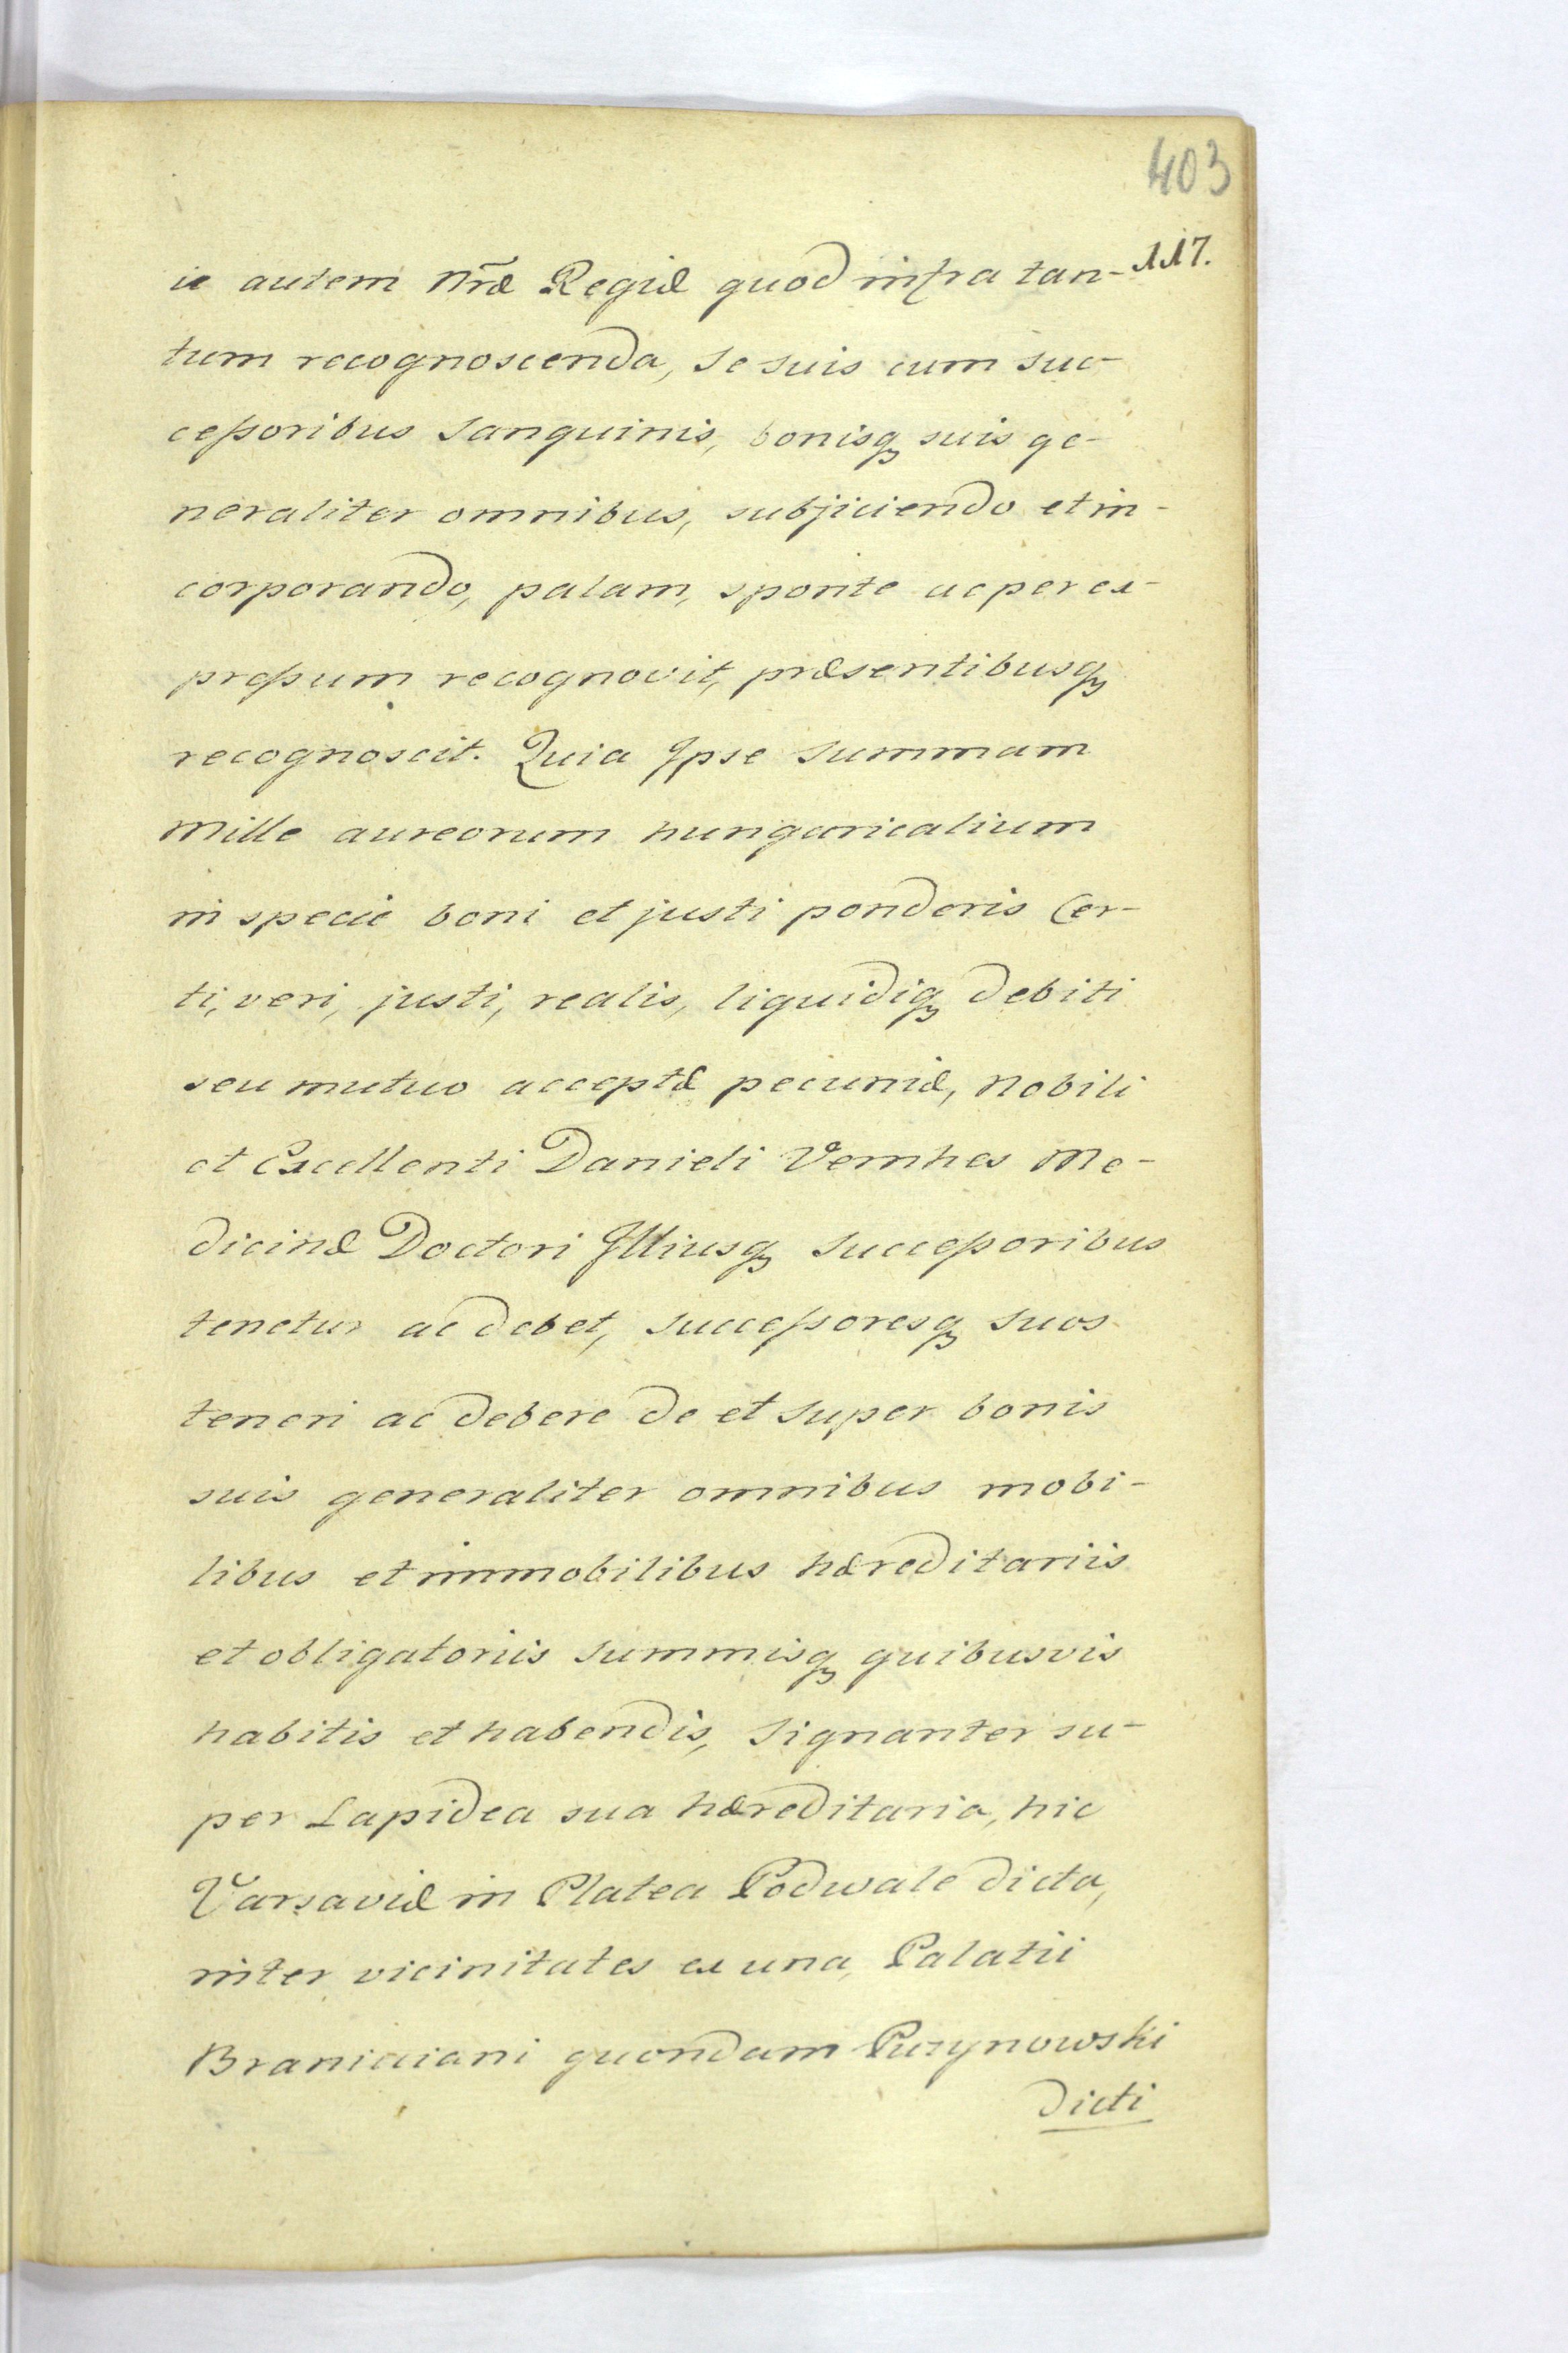 403
117.
ie autem Nræ̃ Regiæ quod infra tan-
tum recognoscenda, se suis cum suc-
ceßoribus sanguinis, bonisq₃ suis ge-
neraliter omnibus, subjiciendo et in-
corporando, palam, sponte ac per ex-
preßum recognovit, præsentibusq₃
recognoscit. Quia Ipse summam
Mille aureorum hungaricalium
in specie boni et justi ponderis Cer-
ti, veri, justi, realis, liquidiq₃ debiti
seu mutuo acceptæ pecuniæ, Nobili
et Excellenti Danieli Vernhes Me-
dicinæ Doctori Illiusq₃ succeßoribus
tenetur ac debet, succeßoresq₃ suos
teneri ac debere de et super bonis
suis generaliter omnibus mobi-
libus et immobilibus hæreditariis
et obligatoriis summisq₃ quibusvis
habitis et habendis, signanter su-
per Lapidea sua hæreditaria, hic
Varsaviæ in Platea Podwale dicta,
inter vicinitates ex una, Palatii
Braniciani quondam Puzynowski
dicti